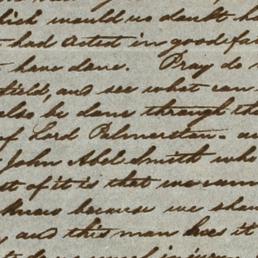 which would no doubt h
had acted in good fa
have done. Pray do
field, and see what can
also be done through th
of Lord Palmerston - a
John Abel Smith who
st of it is that we cann
know because we sha
and this man has it